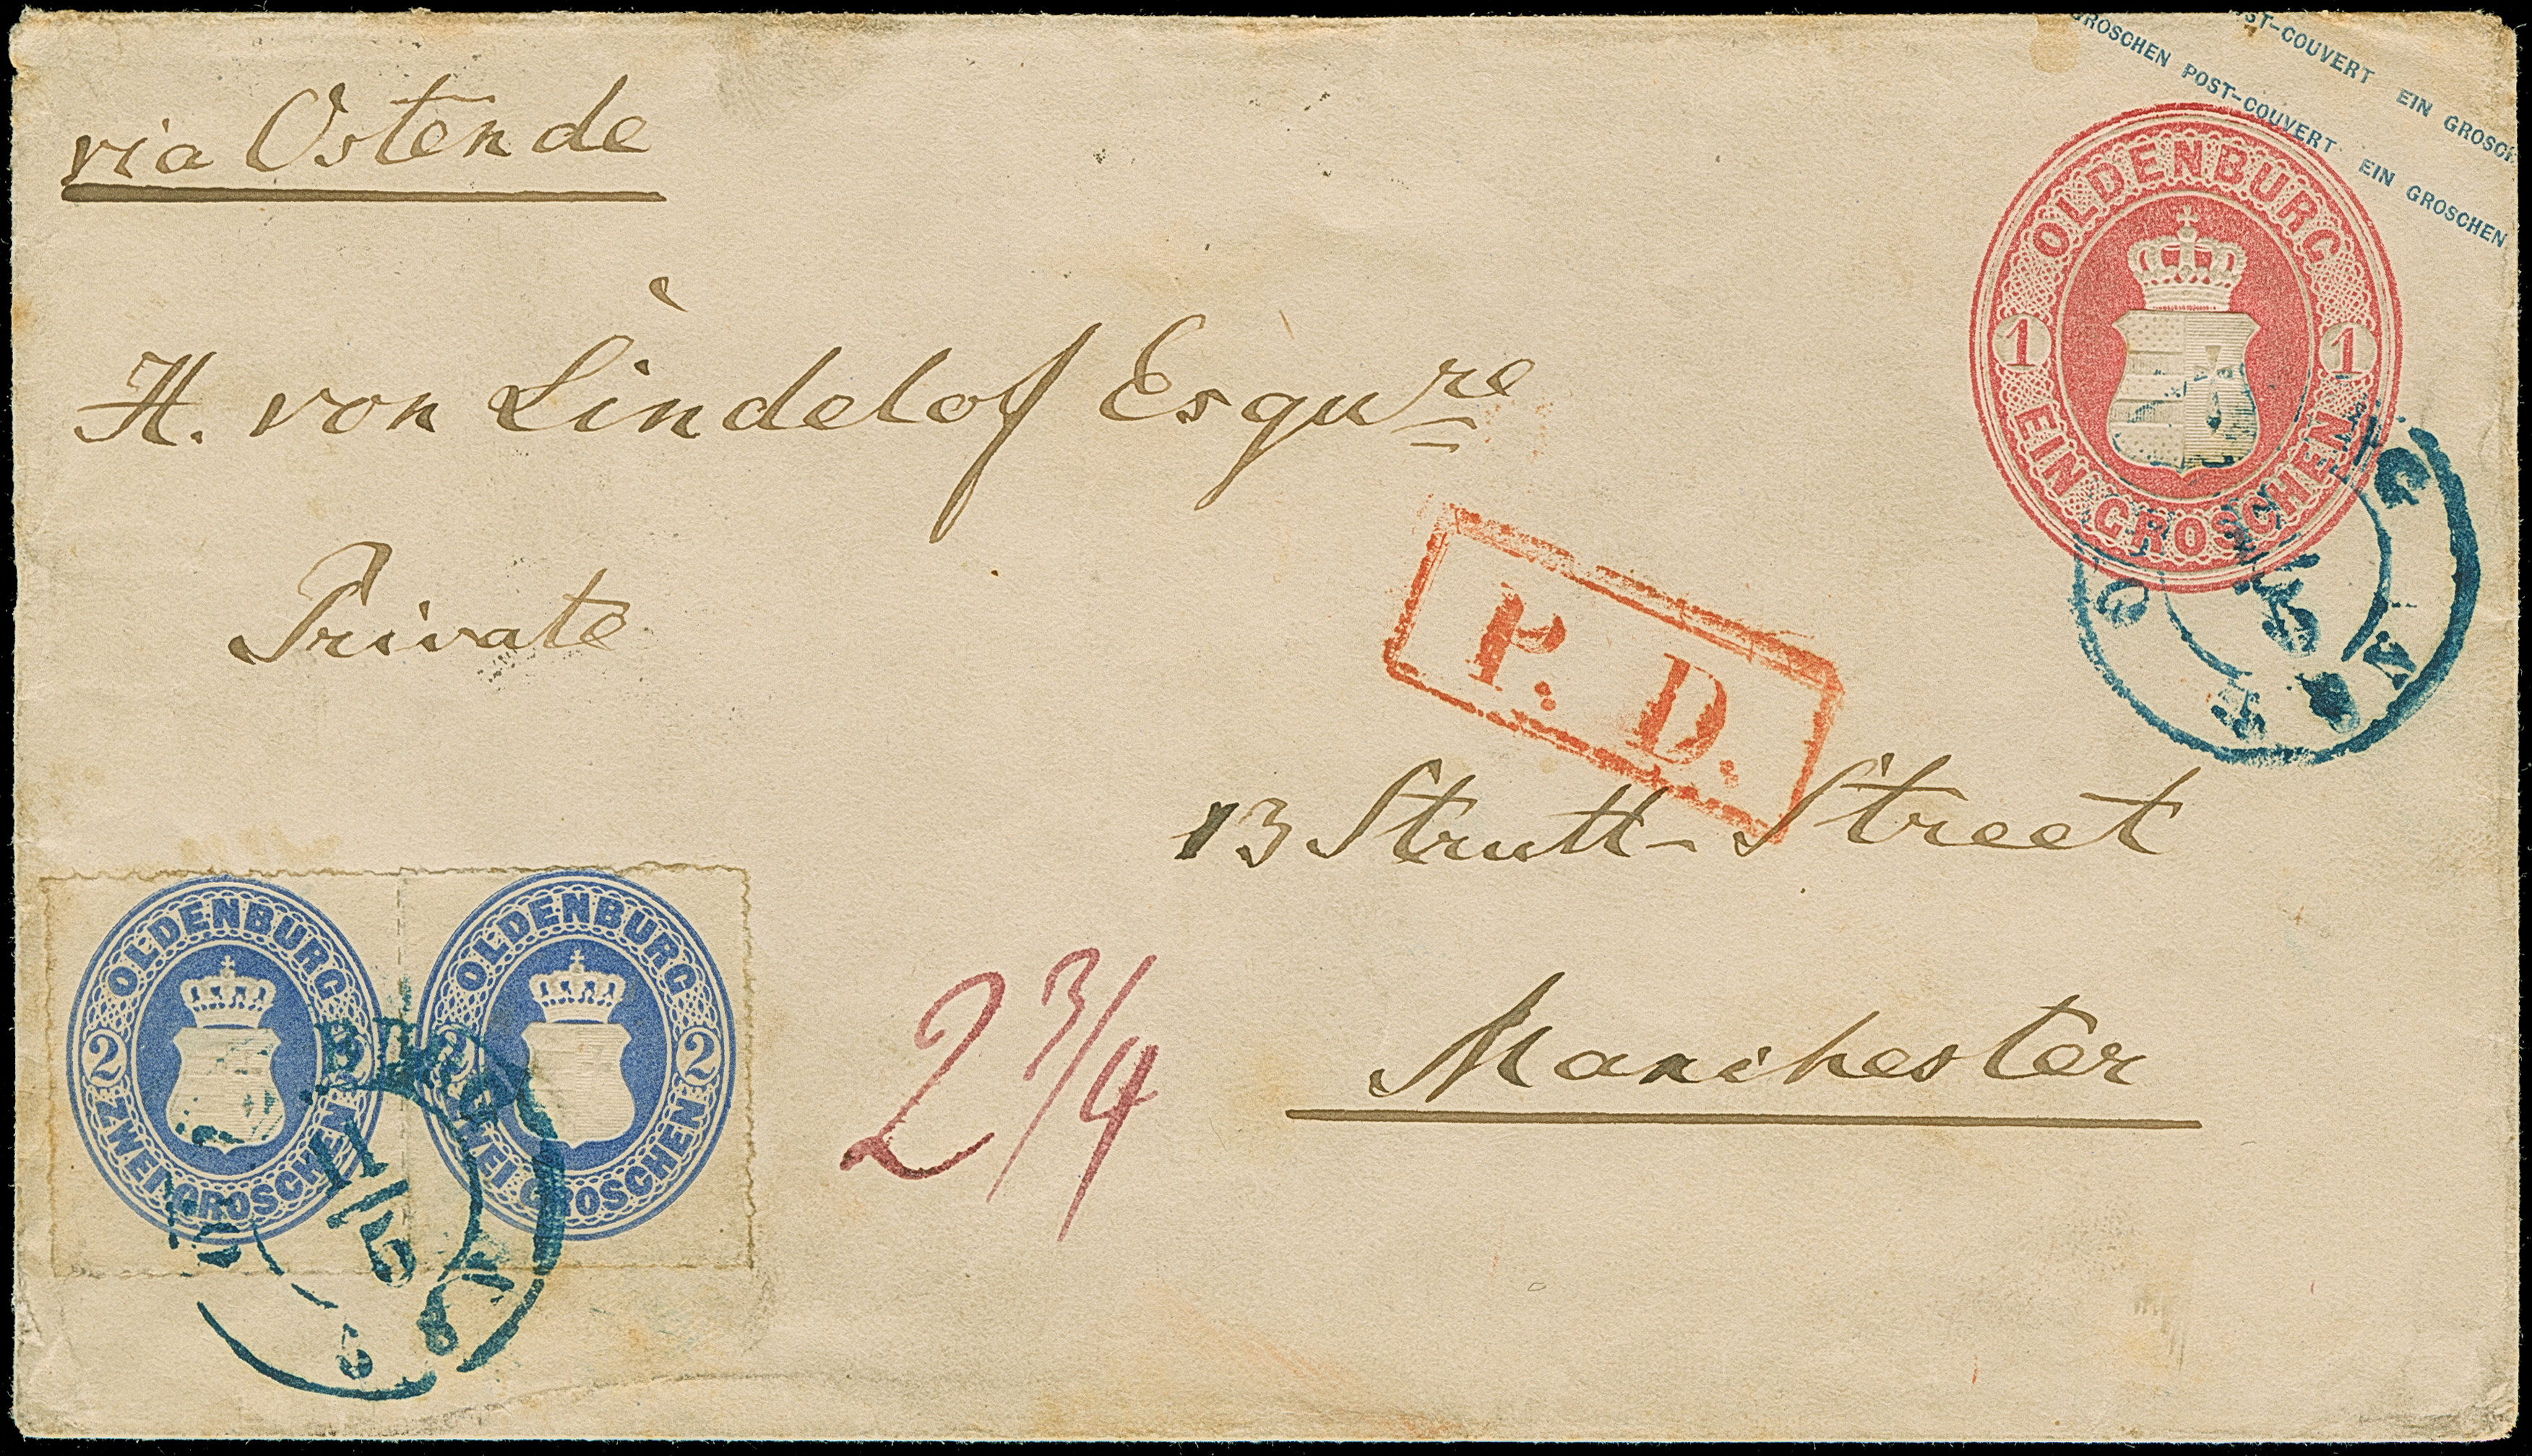 via Ostende
ROSCHEN POST-COUVERT EIN GROSCHEN
ST-COUVERT EIN GROSCH
OLDENBURG
1 1
EIN GROSCHEN
H. von Lindelof Esqu^re
Private
P. D.
13 Strutt-Street
Manchester
2 3/4
OLDENBURG
2 2
ZWEI GROSCHEN
OLDENBURG
2
ZWEI GROSCHEN
11/5